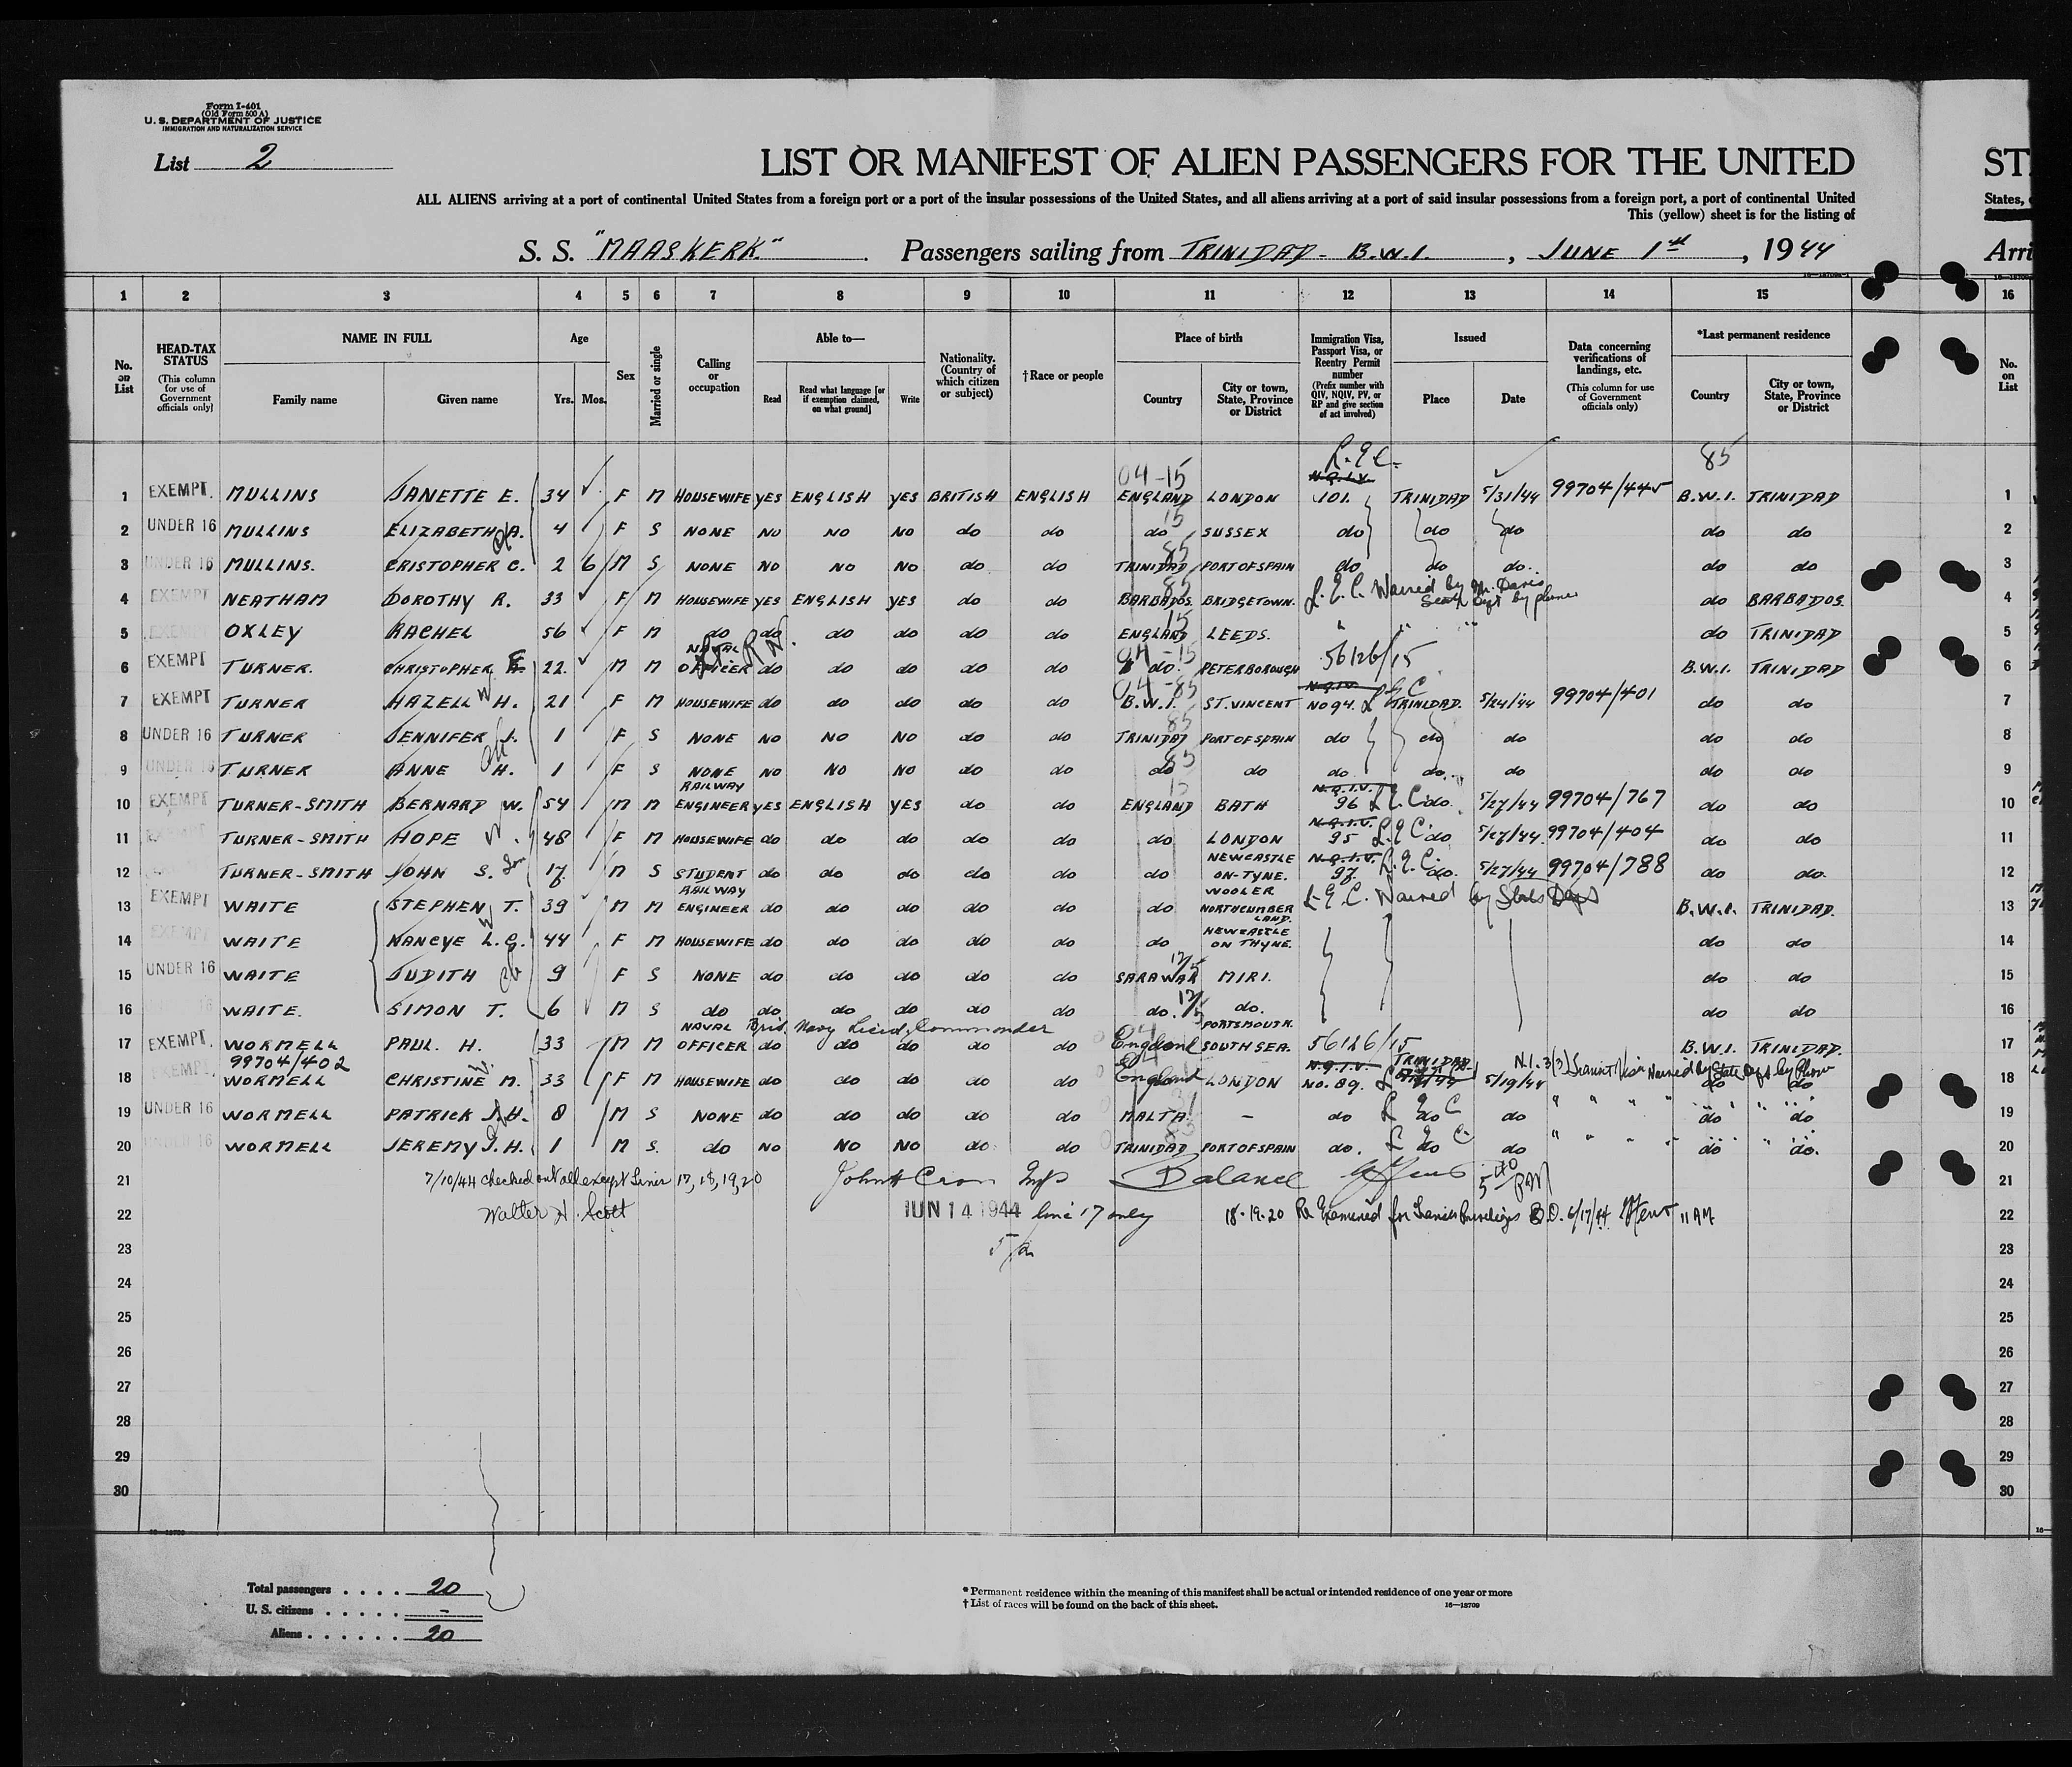 Form I-401
(Old Form 500 A)
U. S. DEPARTMENT OF JUSTICE
IMMIGRATION AND NATURALIZATION SERVICE
List 2
LIST OR MANIFEST OF ALIEN PASSENGERS FOR THE UNITED ST
ALL ALIENS arriving at a port of continental United States from a foreign port or a port of the insular possessions of the United States, and all aliens arriving at a port of said insular possessions from a foreign port, a port of continental United States,
This (yellow) sheet is for the listing of
S. S. "MAASKERK" Passengers sailing from TRINIDAD - B.W.I. , JUNE 1st , 1944 Arri
1 2 3 4 5 6 7 8 9 10 11 12 13 14 15 16
No. on List HEAD-TAX STATUS (This column for use of Government officials only) NAME IN FULL Family name Given name Age Yrs. Mos. Sex Married or single Calling or occupation Able to— Read Read what language [or if exemption claimed, on what ground] Write Nationality. (Country of which citizen or subject) †Race or people Place of birth Country City or town, State, Province or District Immigration Visa, Passport Visa, or Reentry Permit number (Prefix number with QIV, NQIV, PV, or RP and give section of act involved) Issued Place Date Data concerning verifications of landings, etc. (This column for use of Government officials only) *Last permanent residence Country City or town, State, Province or District No. on List
L.E.C. 85
04-15 N.Q.I.V.
1 EXEMPT. MULLINS JANETTE E. 34 F M HOUSEWIFE YES ENGLISH YES BRITISH ENGLISH ENGLAND LONDON 101. TRINIDAD 5/31/44 99704/445 B.W.I. TRINIDAD 1
15
2 UNDER 16 MULLINS ELIZABETH A. 4 F S NONE NO NO NO do do do SUSSEX do do do do do 2
85
3 UNDER 16 MULLINS. CRISTOPHER C. 2 6 M S NONE NO NO NO do do TRINIDAD PORT OF SPAIN do do do do do 3
85
4 EXEMPT NEATHAM DOROTHY R. 33 F M HOUSEWIFE YES ENGLISH YES do do BARBADOS. BRIDGETOWN. L.E.C. Waived by Mr. Davis State Dept by phone do BARBADOS. 4
15
5 EXEMPT OXLEY RACHEL 56 F M do do do do do do ENGLAND LEEDS. " " " do TRINIDAD 5
04-15
6 EXEMPT TURNER. CHRISTOPHER 22. M M NAVAL OFFICER do do do do do do. PETERBOROUGH 56126/15 B.W.I. TRINIDAD 6
04-85 N.Q.I.V. L E C
7 EXEMPT TURNER HAZELL W H. 21 F M HOUSEWIFE do do do do do B.W.I. ST. VINCENT NO 94. TRINIDAD. 5/24/44 99704/401 do do 7
85
8 UNDER 16 TURNER JENNIFER J. 1 F S NONE NO NO NO do do TRINIDAD PORT OF SPAIN do do do do do 8
85
9 UNDER 16 TURNER ANNE H. 1 F S NONE NO NO NO do do do do do do do do do 9
10 EXEMPT TURNER-SMITH BERNARD W. 54 M M RAILWAY ENGINEER YES ENGLISH YES do do ENGLAND BATH N.Q.I.V. 96 L.E.C. do. 5/27/44 99704/767 do do 10
11 TURNER-SMITH HOPE W. 48 F M HOUSEWIFE do do do do do do LONDON N.Q.I.V. 95 L.E.C. do 5/27/44. 99704/404 do do 11
12 TURNER-SMITH JOHN S. Son 17. M S STUDENT do do do do do do NEWCASTLE ON-TYNE. N.Q.I.V. 97. L.E.C. do. 5/27/44 99704/788 do do. 12
13 EXEMPT WAITE STEPHEN T. 39 M M RAILWAY ENGINEER do do do do do do WOOLER NORTHCUMBERLAND. L.E.C. Waived by State Dept B.W.I. TRINIDAD. 13
14 EXEMPT WAITE NANCYE L.G. 44 F M HOUSEWIFE do do do do do do NEWCASTLE ON THYNE. do do 14
15 UNDER 16 WAITE JUDITH 9 F S NONE do do do do do SARAWAK MIRI. do do 15
16 UNDER 16 WAITE. SIMON T. 6 M S do do do do do do do. do. do do 16
17 EXEMPT. WORMELL PAUL. H. 33 M M NAVAL OFFICER Brit. Navy Lieut. Commander do do do do do England PORTSMOUTH. SOUTH SEA. 56126/15 B.W.I. TRINIDAD. 17
99704/402
18 EXEMPT. WORMELL CHRISTINE W. M. 33 F M HOUSEWIFE do do do do do England LONDON N.Q.I.V. NO. 89. TRINIDAD. 5/19/44 N.I. 3(3) Transit Visa Waived by State Dept. by Phone do do 18
19 UNDER 16 WORMELL PATRICK J.H. 8 M S NONE do do do do do MALTA. - do L E C do do " " " " do do 19
20 UNDER 16 WORMELL JEREMY J.H. 1 M S. do NO NO NO do do TRINIDAD PORT OF SPAIN do. L E C do do " " " " do do. 20
21 7/10/44 checked out all except Lines 17, 18, 19, 20 John H Cron Insp Balance 5 40 PM 21
22 Walter H. Scott JUN 14 1944 line 17 only 18-19-20 Re Examined for Transit Privileges 6/17/44 11 AM 22
23 23
24 24
25 25
26 26
27 27
28 28
29 29
30 30
16—18709
Total passengers . . . . 20
U. S. citizens . . . . . -
Aliens . . . . . . 20
* Permanent residence within the meaning of this manifest shall be actual or intended residence of one year or more
† List of races will be found on the back of this sheet. 16—18709